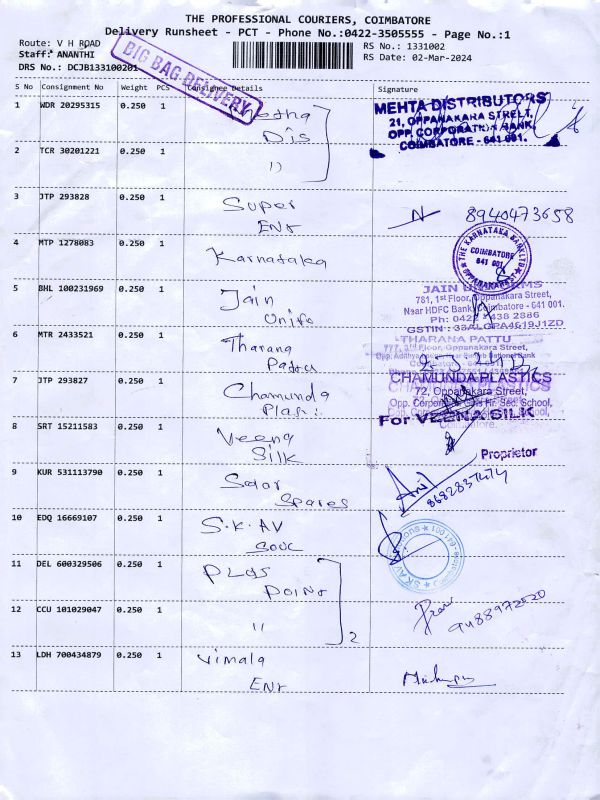 THE PROFESSIONAL COURIERS, COIMBATORE
Delivery Runsheet - PCT - Phone No.:0422-3505555 - Page No.:1
Route: V H ROAD
Staff: ANANTHI
DRS No.: DCJB133100201
RS No.: 1331002
RS Date: 02-Mar-2024
BIG BAG DELIVERY
S No Consignment No Weight PCS Consignee Details Signature
1 WDR 20295315 0.250 1
Dis
MEHTA DISTRIBUTORS
21, OPPANAKARA STREET,
OPP. CORPORATION BANK,
COIMBATORE - 641 001.
2 TCR 30201221 0.250 1 "
3 JTP 293828 0.250 1 Super
Ent
8940473658
4 MTP 1278083 0.250 1 Karnataka
THE KARNATAKA BANK LTD
COIMBATORE
641 001
5 BHL 100231969 0.250 1 Jain
Unifo
JAIN
781, 1st Floor, Oppanakara Street,
Near HDFC Bank, Coimbatore - 641 001.
6 MTR 2433521 0.250 1 Tharana
Pattu
THARANA PATTU
777, 3rd Floor, Oppanakara Street,
7 JTP 293827 0.250 1 Chamunda
Plasti
CHAMUNDA PLASTICS
72, Oppanakara Street,
Opp. Corporation Girls Hr. Sec. School,
Coimbatore.
8 SRT 15211583 0.250 1 Veena
Silk
For VEENA SILK
Proprietor
9 KUR 531113790 0.250 1
Spares
10 EDQ 16669107 0.250 1 S.K.AV
11 DEL 600329506 0.250 1 Plas
Point
12 CCU 101029047 0.250 1 "
2
13 LDH 700434879 0.250 1 Vimala
Ent